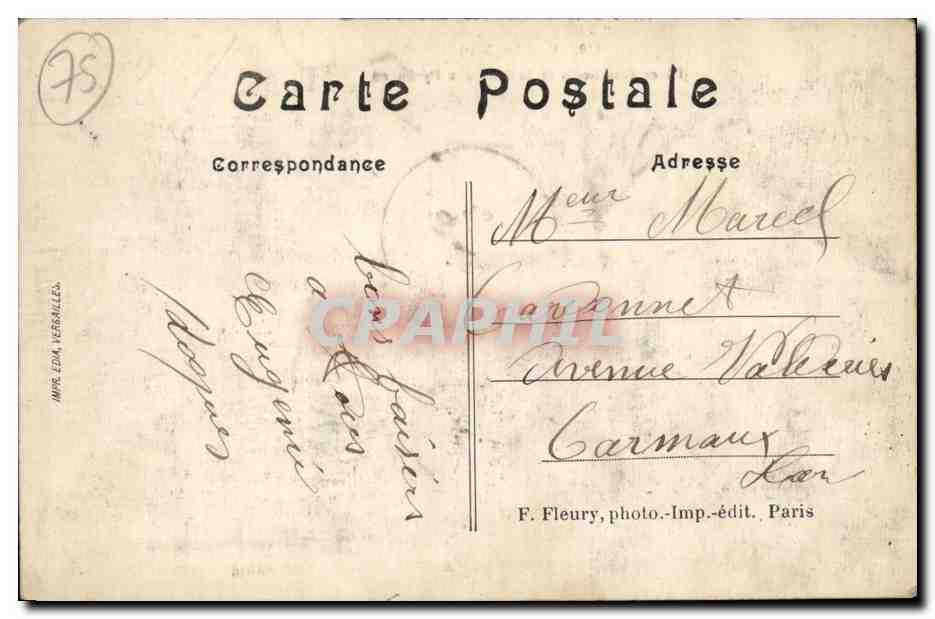 75
Carte Postale
Correspondance
Adresse
bons baisers
a tous
Eugenie
Meur Marcel
avenue
Carmaux
Tarn
F. Fleury, photo.-Imp.-édit. Paris
IMPR. EDIA, VERSAILLES.
CPAPHIL